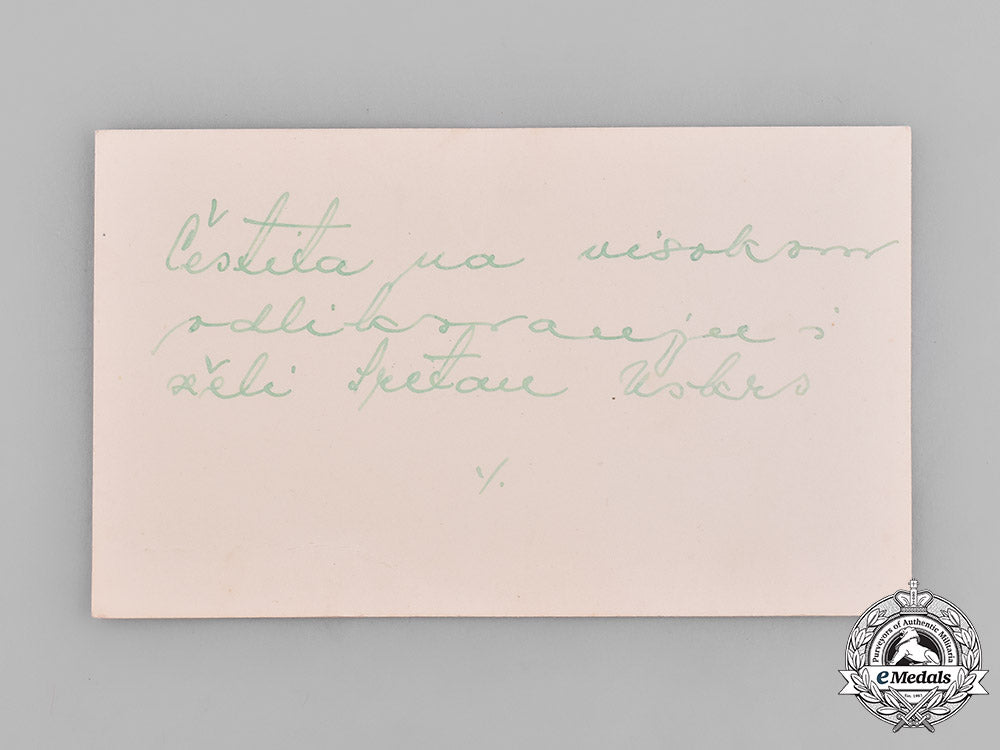 Čestita na visokom
odlikovanju i
želi Sretan Uskrs
·/.
Purveyors of Authentic Militaria
eMedals